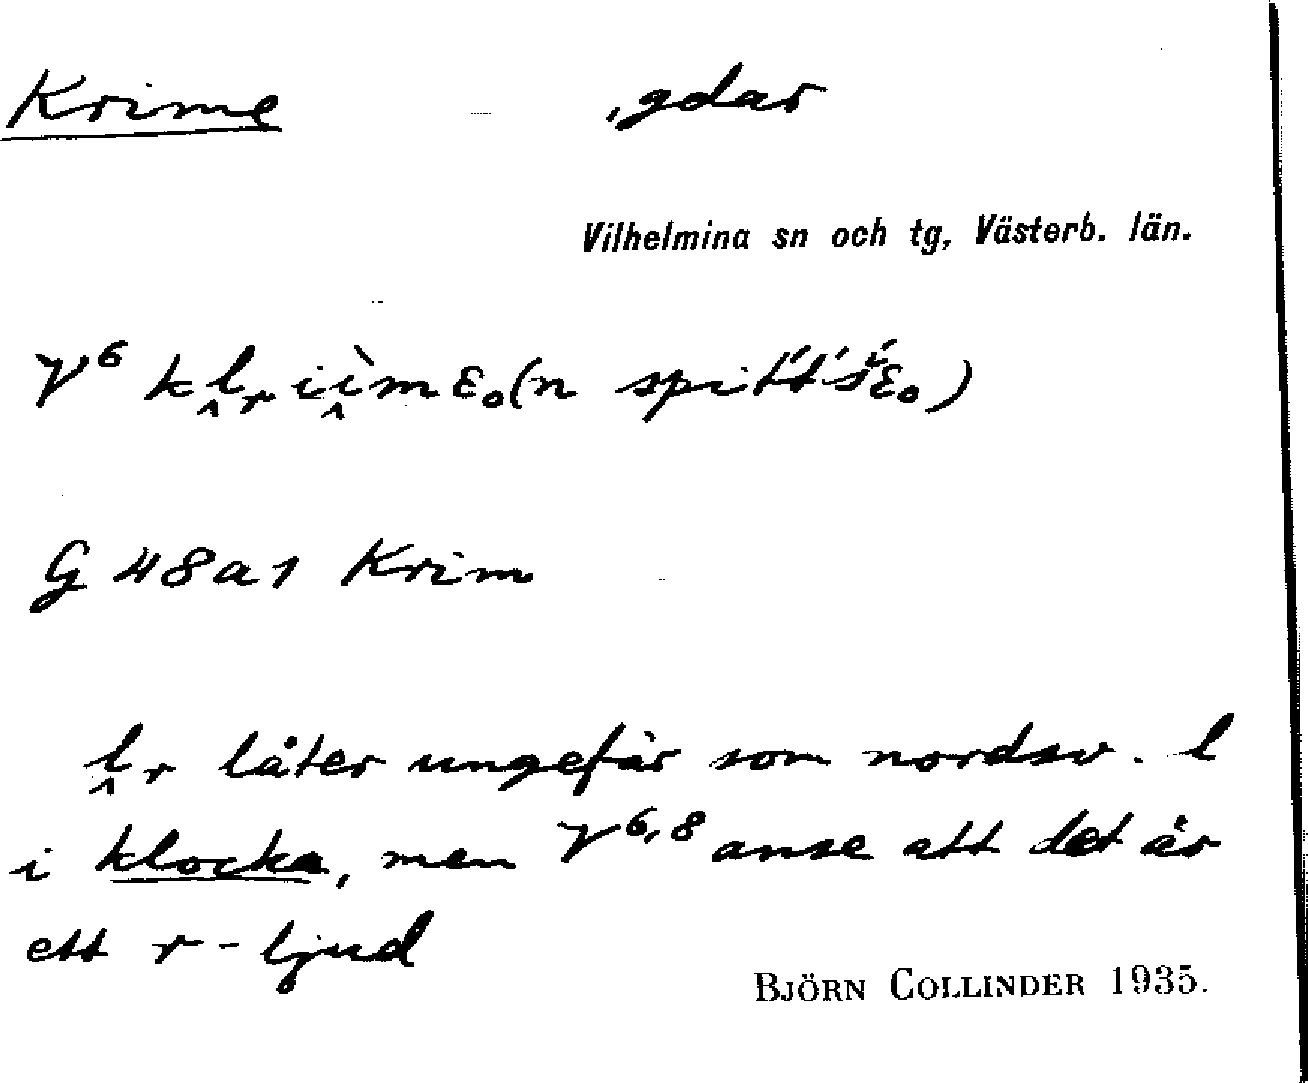 Krime ,gdar
Vilhelmina sn och tg, Västerb. län.
V⁶ kḽᵣiì̭mε₀(n spit́t́śε₀)
G 48a1 Krim
ḽᵣ låter ungefär som nordsv. l
i klocka, men V⁶,⁸ anse att det är
ett r-ljud
BJÖRN COLLINDER 1935.